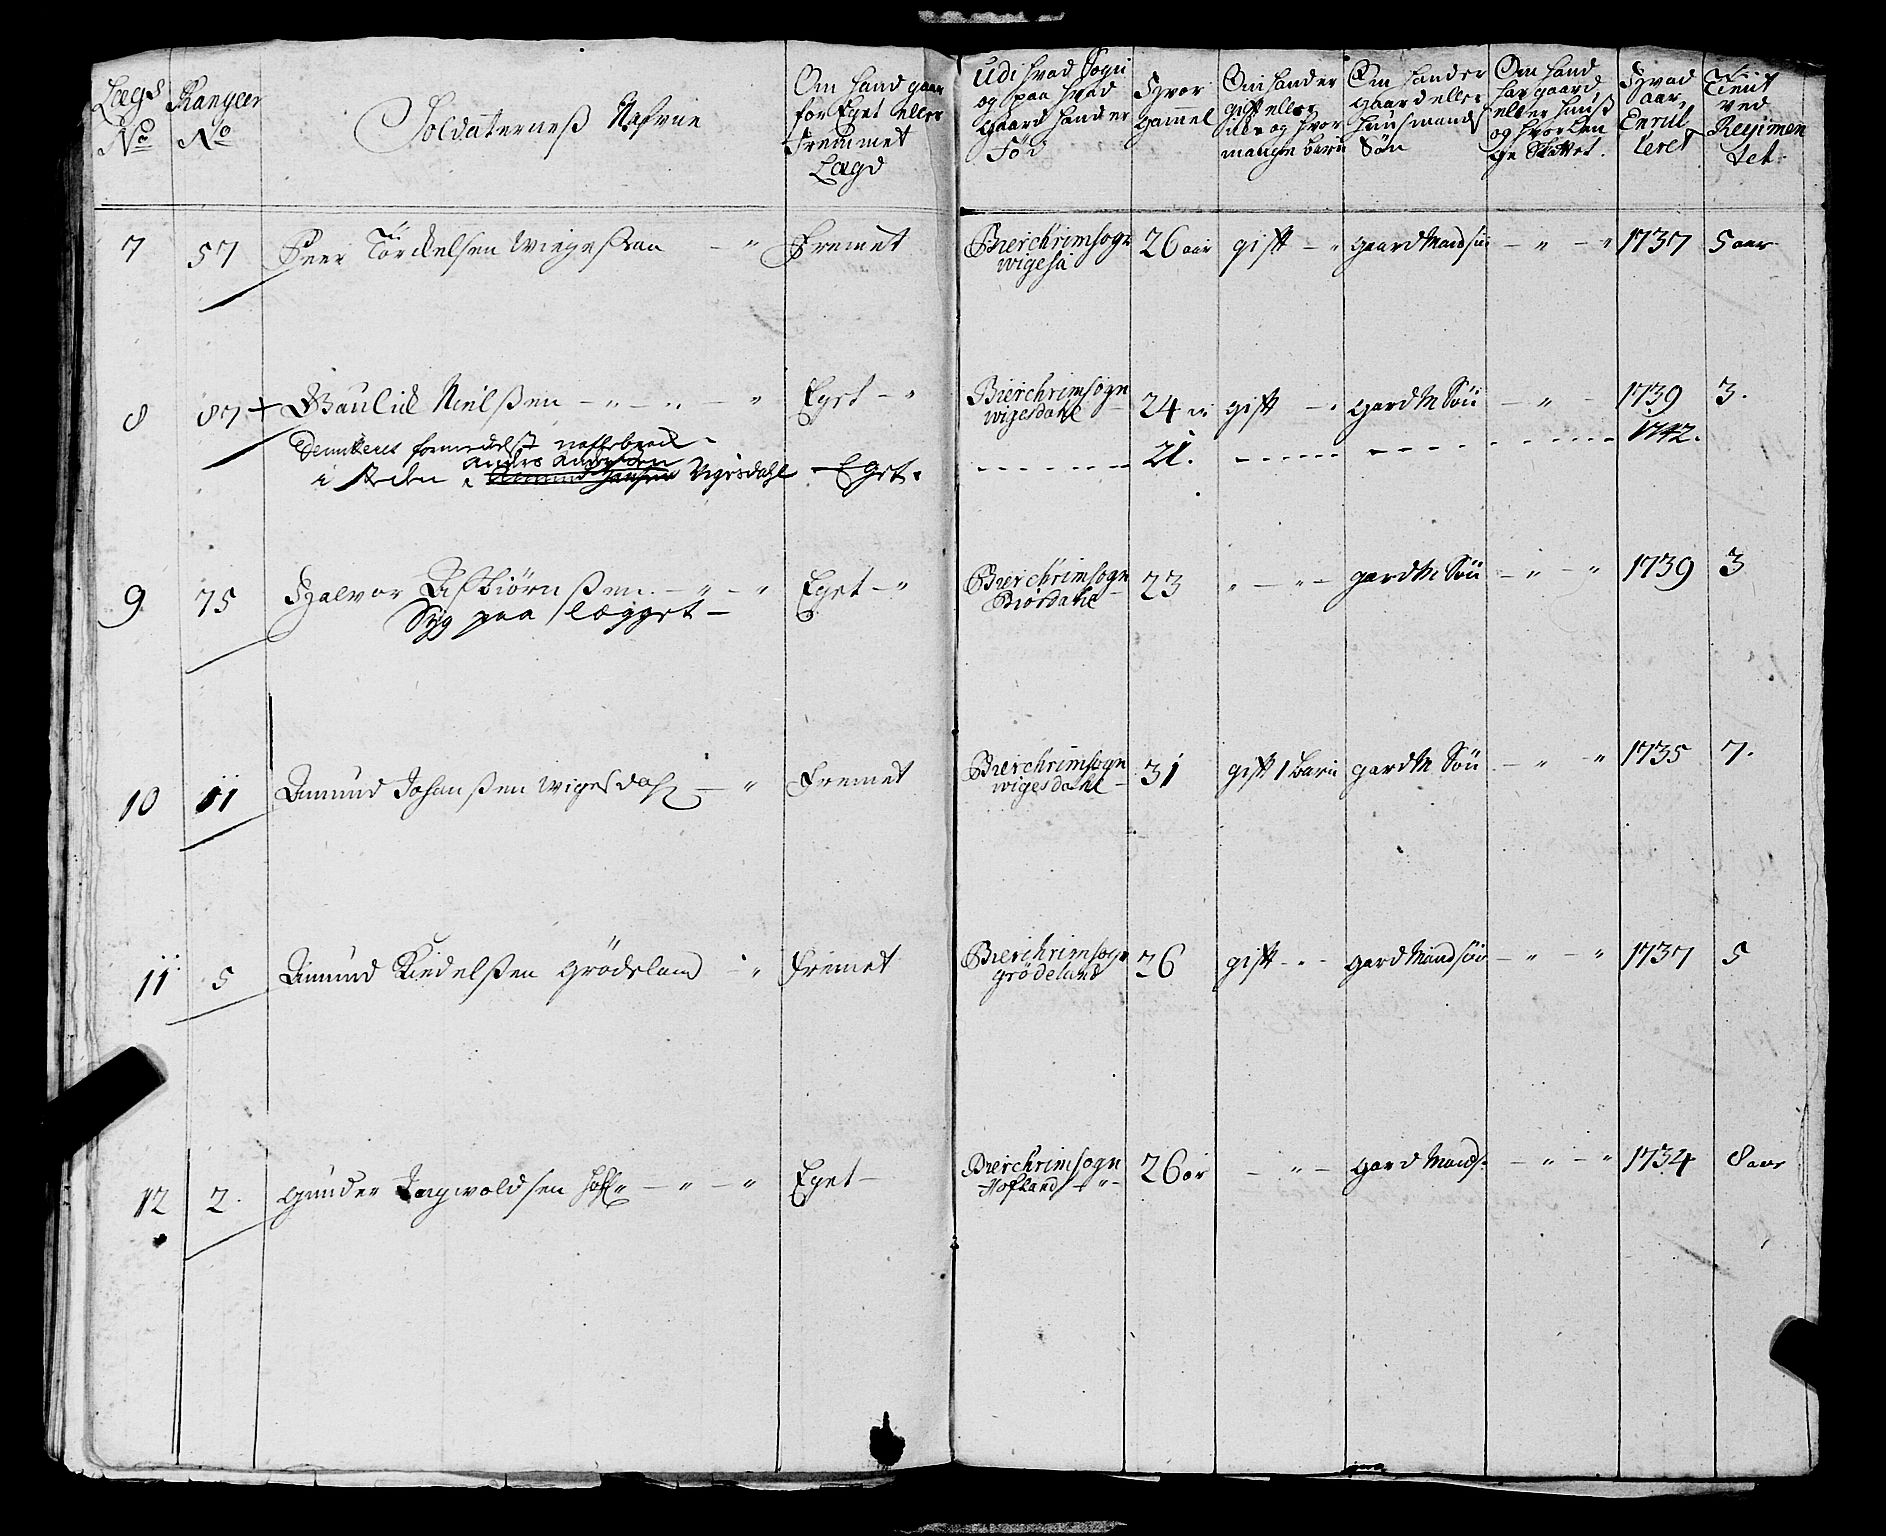 Lægs No
Rangeer No
Soldaterneß Nafne
Om hand gaar for Eget eller fremmet Lægd
Udi hvad Sogn og paa hvad gaard hand er Fød
Hvor gammel
Om hand er gift eller ikke og hvor mange barn
Om hand er gaard eller huusmands Søn
Om hand har gaard eller huuß og hvor længe
Hvad aar Enrulleret
Tient ved Regimentet
7 57 Peer Törckelsen Wiegeßaa - " fremet Bierchrimsogn wigesaa 26 aar gift - " gaard Mandsøn - " - " 1737 5 aar
8 87 + Gaulick Nielßen - " - " - " Eget - " Bierchrimsogn wigesdahl 24 gift - " gard M Søn - " - 1739 3.
formedelst
i steden Anders Andersen Vigesdahl - Eget. 21. 1742.
9 75 Halvor Asbiörnßen. - " - " Eget - " Bierchrimsogn Biørdahl 23 " - " - gard M Søn - " - " 1739 3
Syg paa lægget -
10 11 Amund Johanßen Wigesdahl - " fremet Bierchrimsogn wigesdahl - 31 gift 1 barn gard M Søn - " " 1735 7.
11 5 Amund Kiedelßen grödeland " fremet Bierchrimsogn grödeland 26 gift - " - gard Mandsøn - " - " 1737 5
12 2. gunder Ingwoldsen hofl: - " - " Eget - Bierchrimsogn Hofland - " - 26 ar - " - gard Mands: - " - " 1734 8 aar